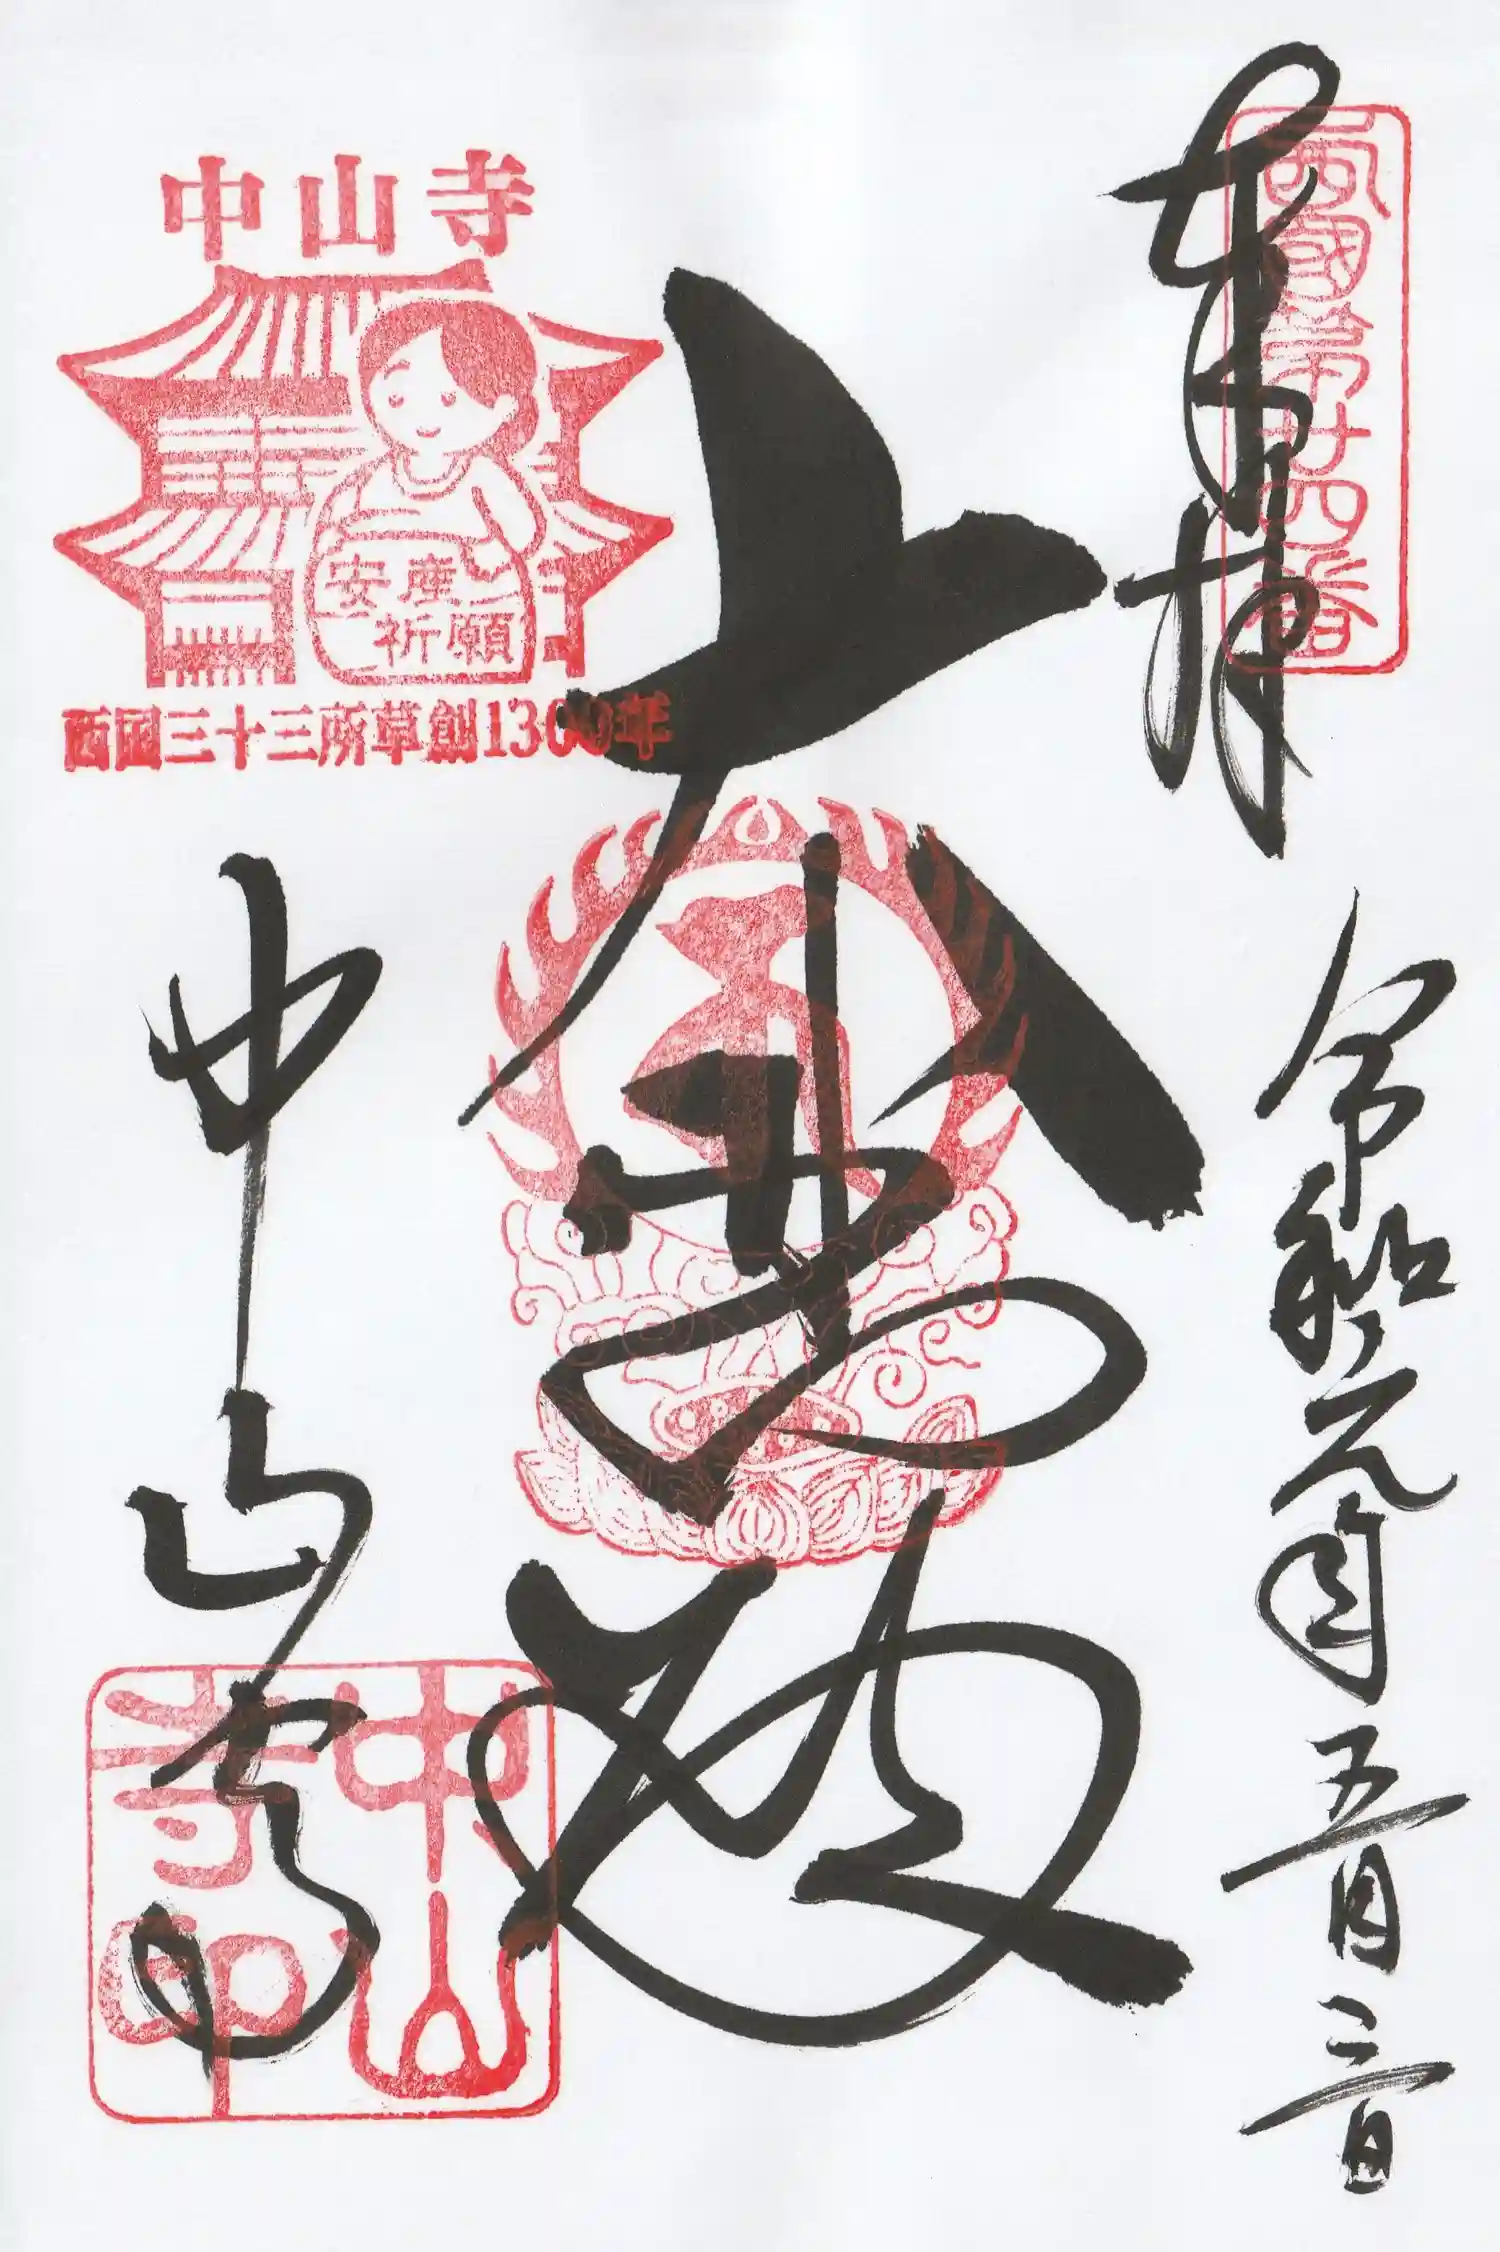 奉拝
西國第廿四番
令和元年五月三日
大悲殿
中山寺
安産
祈願
西国三十三所草創1300年
中山寺
中山寺印